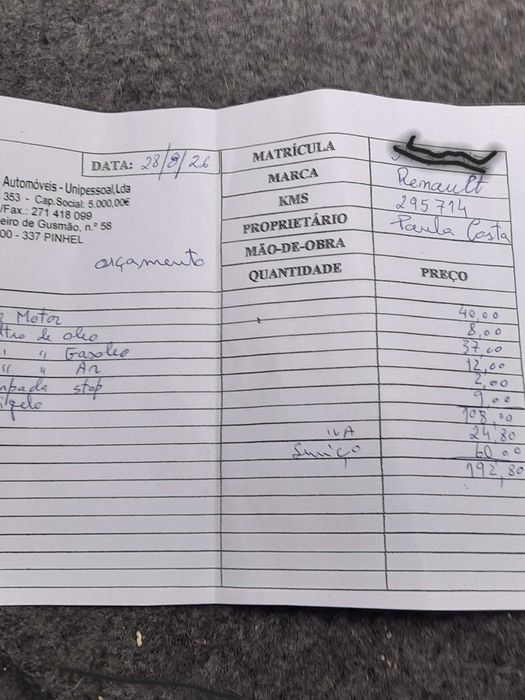 DATA: 28/8/26
Automóveis - Unipessoal, Lda
353 - Cap. Social: 5.000,00€
/Fax.: 271 418 099
eiro de Gusmão, n.º 58
00 - 337 PINHEL
orçamento
MATRÍCULA
MARCA Renault
KMS 295714
PROPRIETÁRIO Paula Costa
MÃO-DE-OBRA
QUANTIDADE PREÇO
Motor 40,00
ltro de oleo 8,00
" " Gasoleo 37,00
" " Ar 12,00
mpada stop 2,00
igelo 9,00
108,00
IVA 24,80
Serviço 60,00
192,80